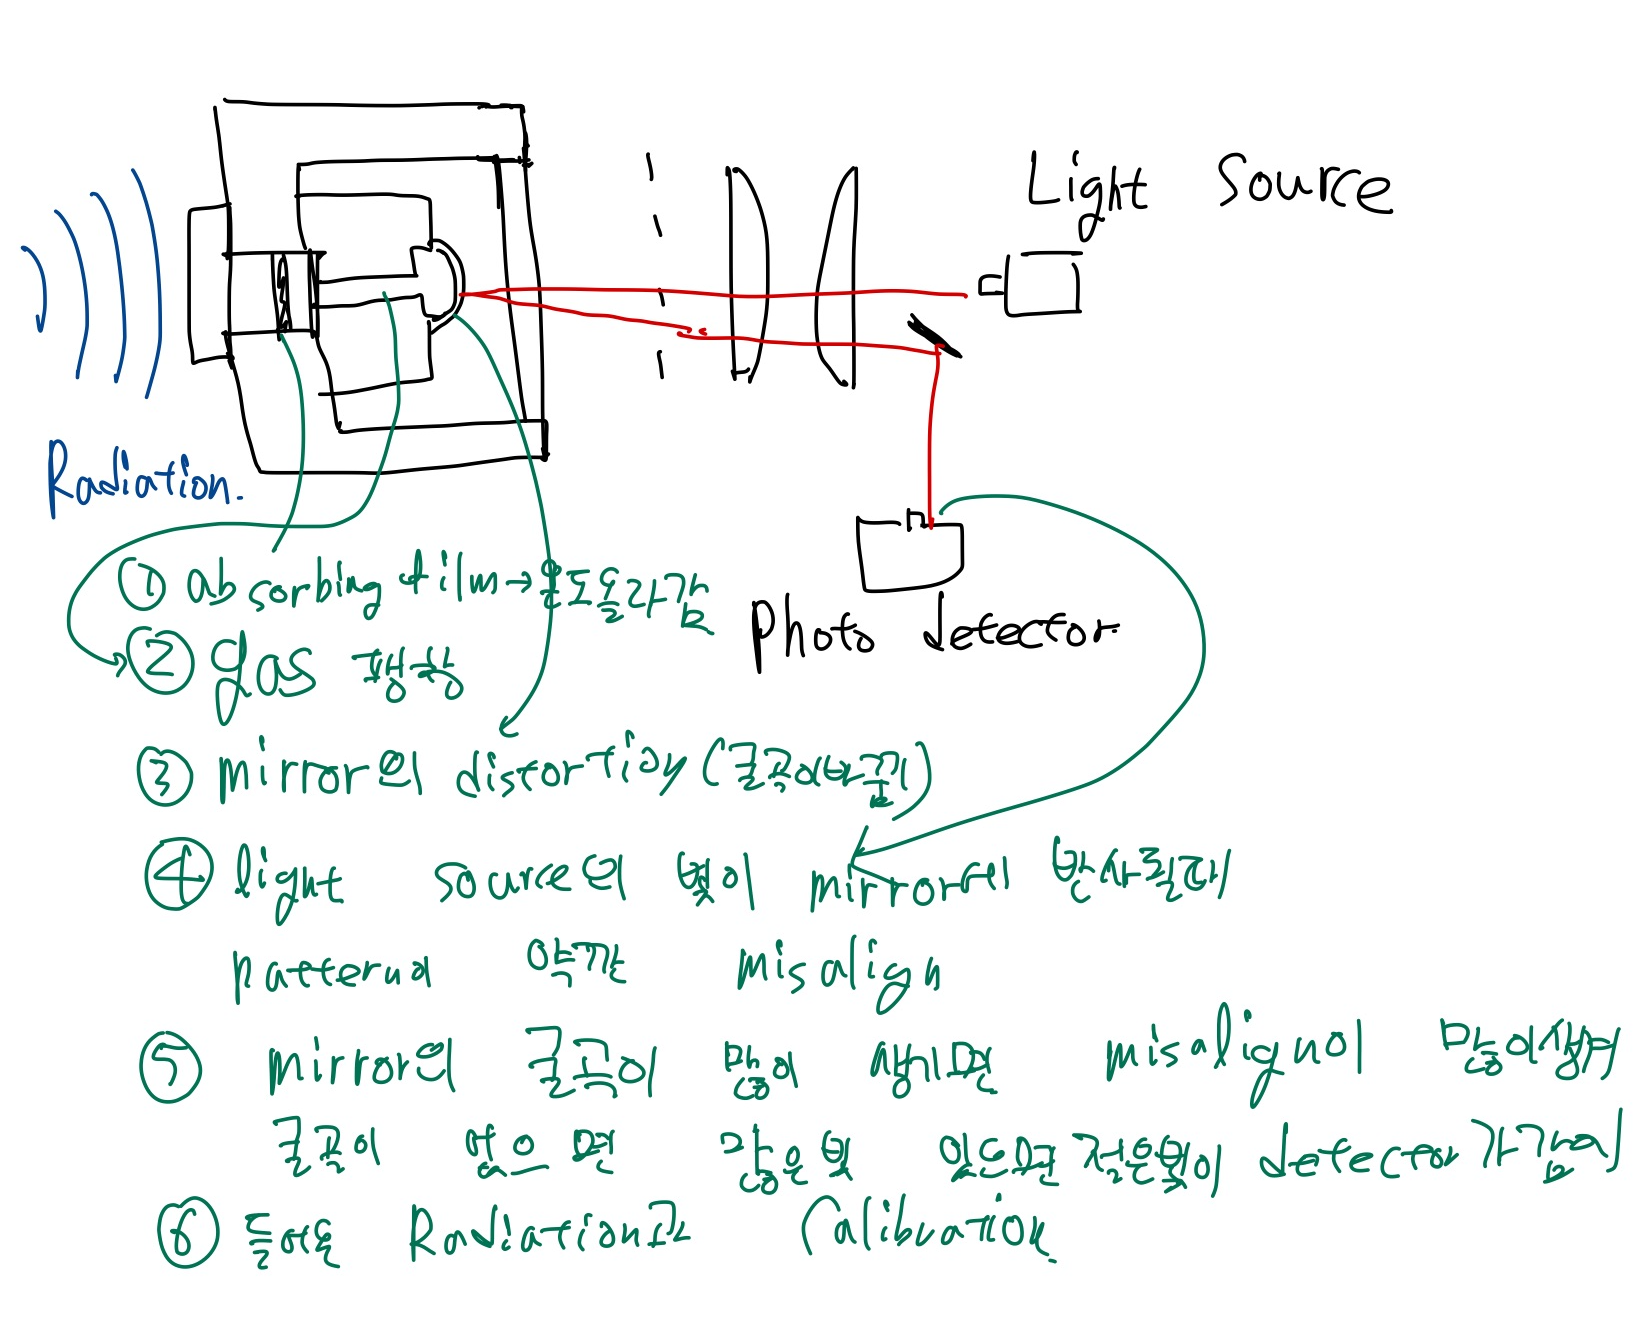 Light Source
Radiation.
Photo detector.
① absorbing film → 온도올라감
② gas 팽창
③ mirror의 distortion (굴곡이바뀜)
④ light source의 빛이 mirror에 반사될때
pattern이 약깐 misalign
⑤ mirror의 굴곡이 많이 생기면 misalign이 많이생겨
굴곡이 없으면 많은빛 있으면 적은빛이 detector가감지
⑥ 들어온 Radiation과 Calibration